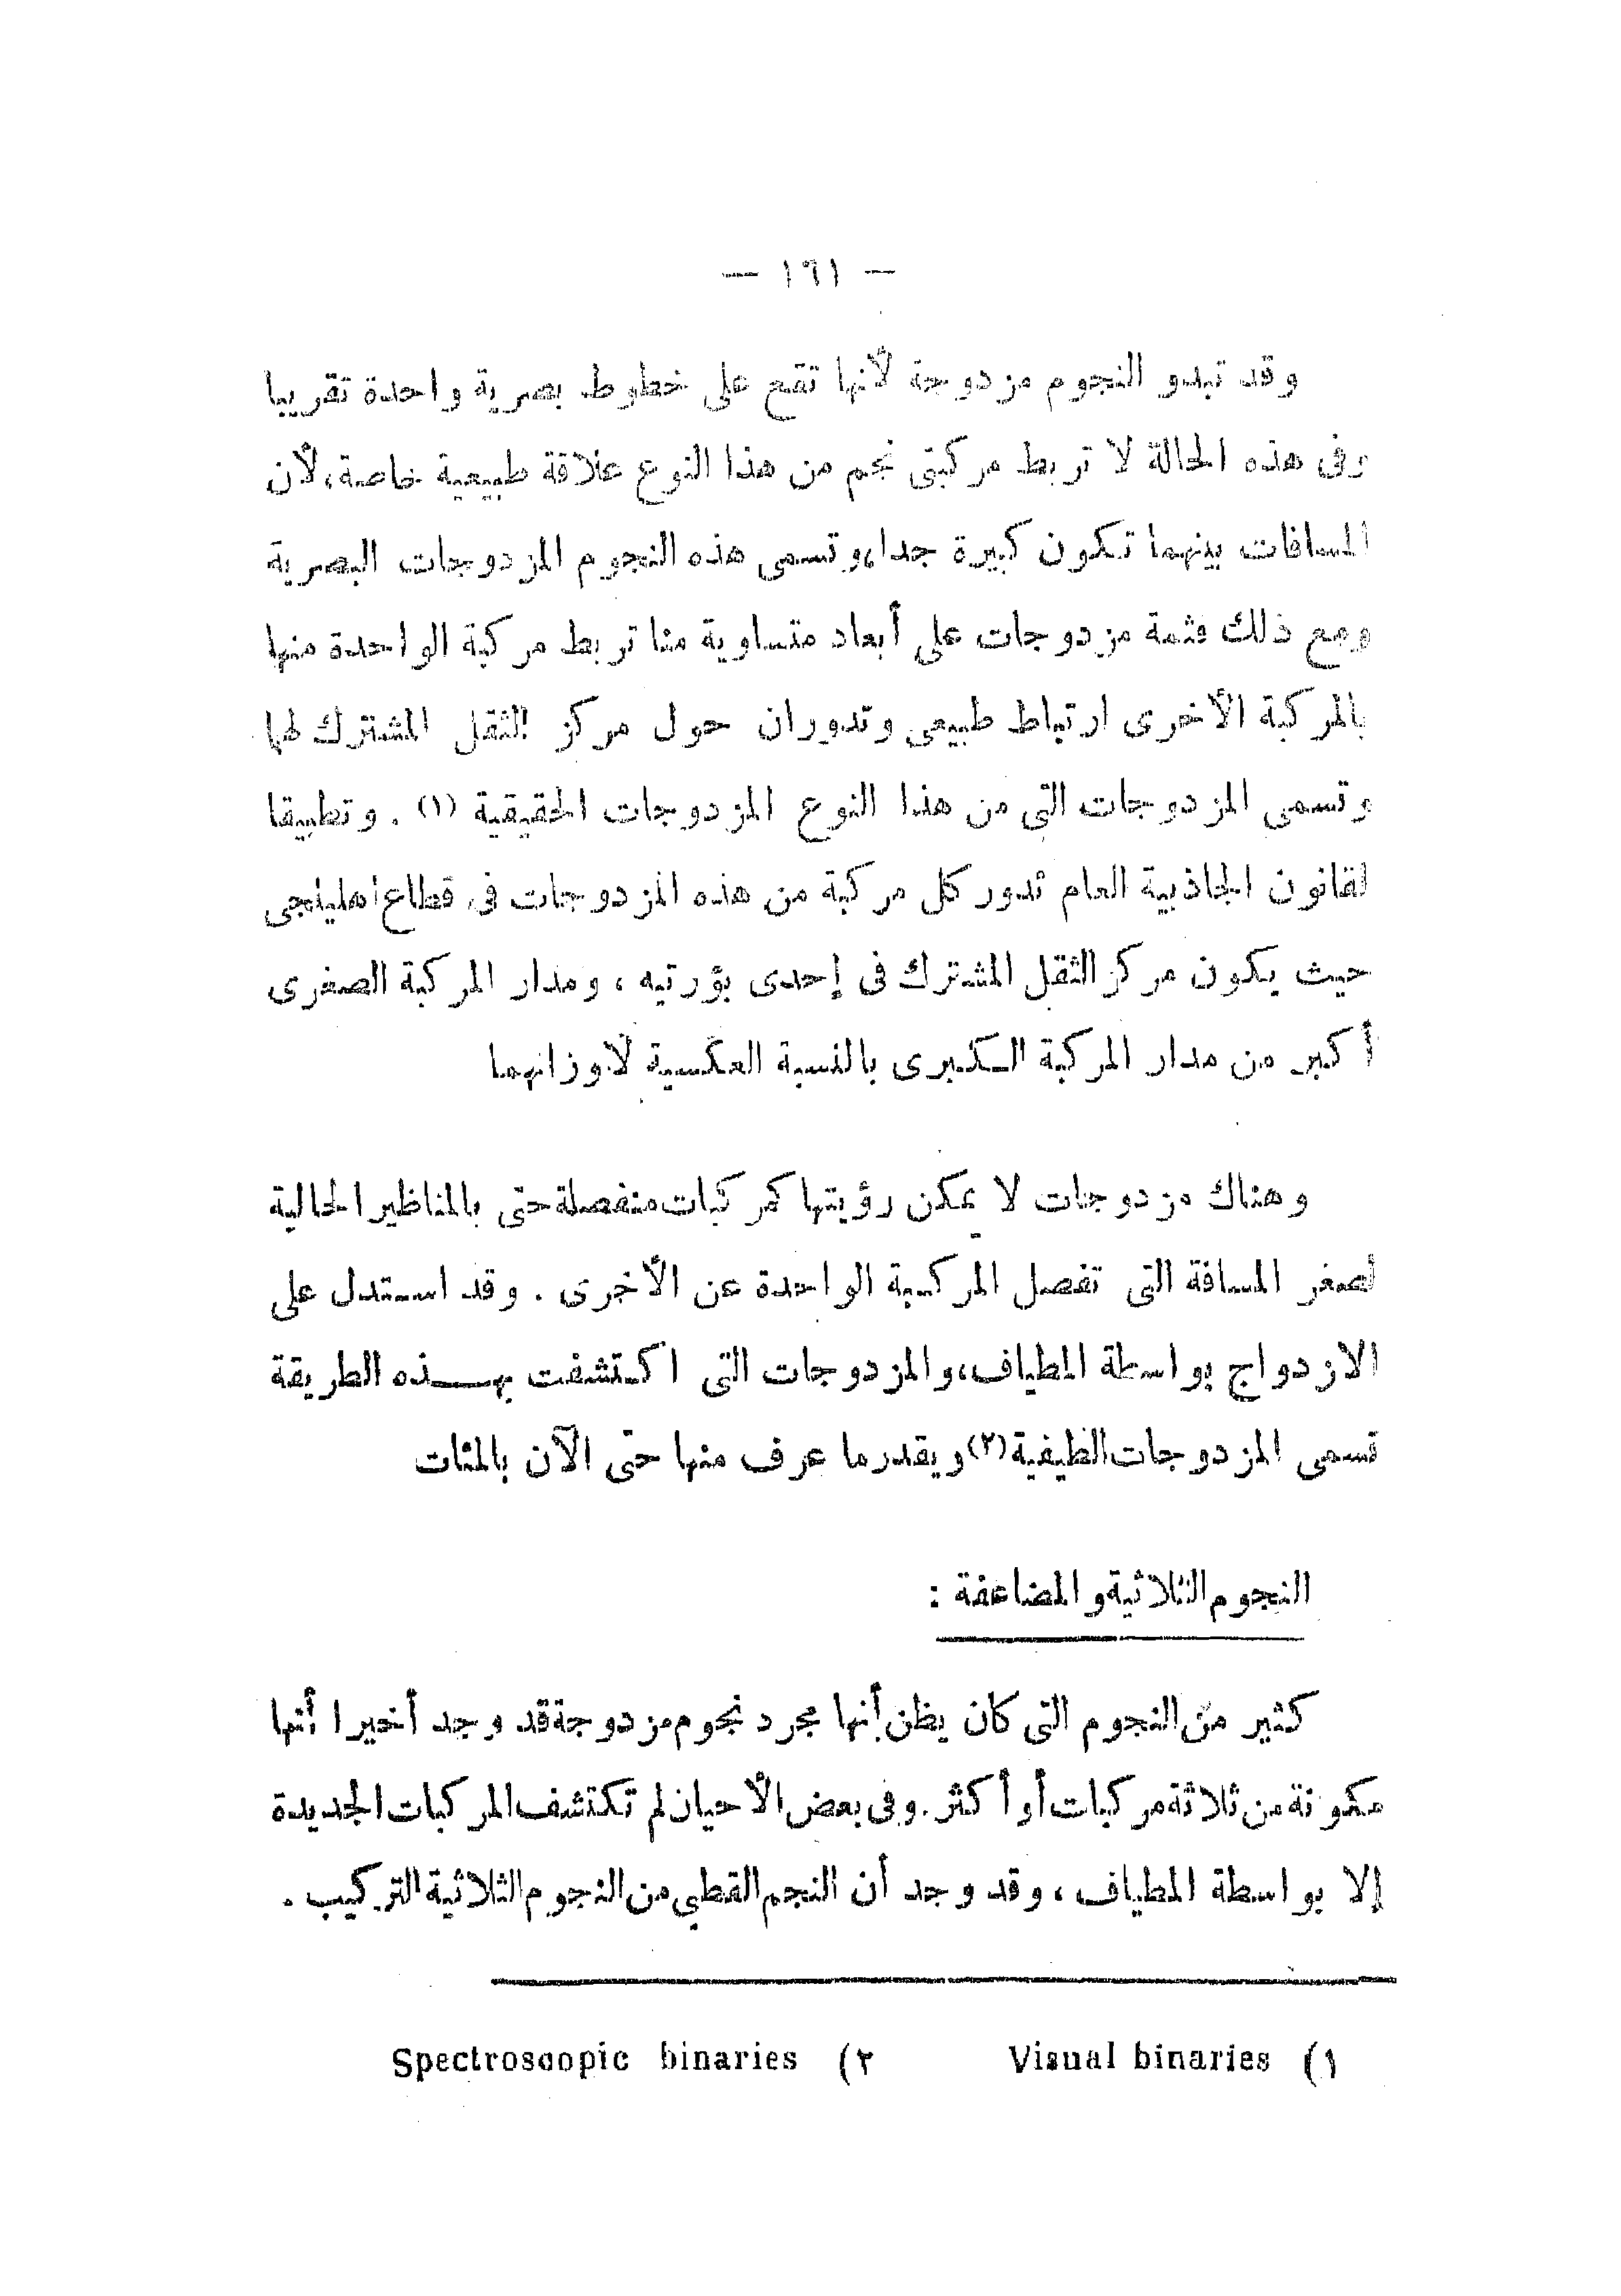 — ١٦١ —
وقد تبدو النجوم مزدوجة لأنها تقع على خطوط بصرية واحدة تقريبا
وفى هذه الحالة لا تربط مركبتى نجم من هذا النوع علاقة طبيعية خاصة، لأن
المسافات بينهما تكون كبيرة جدا، وتسمى هذه النجوم المزدوجات البصرية
ومع ذلك فثمة مزدوجات على أبعاد متساوية منا تربط مركبة الواحدة منها
بالمركبة الأخرى ارتباط طبيعى وتدوران حول مركز الثقل المشترك لهما
وتسمى المزدوجات التى من هذا النوع المزدوجات الحقيقية (١) . وتطبيقا
لقانون الجاذبية العام تدور كل مركبة من هذه المزدوجات فى قطاع اهليلجى
حيث يكون مركز الثقل المشترك فى إحدى بؤرتيه ، ومدار المركبة الصغرى
أكبر من مدار المركبة الكبرى بالنسبة العكسية لأوزانهما
وهناك مزدوجات لا يمكن رؤيتها كمركبات منفصلة حتى بالمناظير الحالية
لصغر المسافة التى تفصل المركبة الواحدة عن الأخرى . وقد استدل على
الازدواج بواسطة المطياف، والمزدوجات التى اكتشفت بهذه الطريقة
تسمى المزدوجات الطيفية (٢) ويقدر ما عرف منها حتى الآن بالمئات
النجوم الثلاثية والمضاعفة :
كثير من النجوم التى كان يظن أنها مجرد نجوم مزدوجة قد وجد أخيرا أنها
مكونة من ثلاثة مركبات أو أكثر . وفى بعض الأحيان لم تكتشف المركبات الجديدة
إلا بواسطة المطياف ، وقد وجد أن النجم القطبى من النجوم الثلاثية التركيب .
١) Visual binaries ٢) Spectroscopic binaries